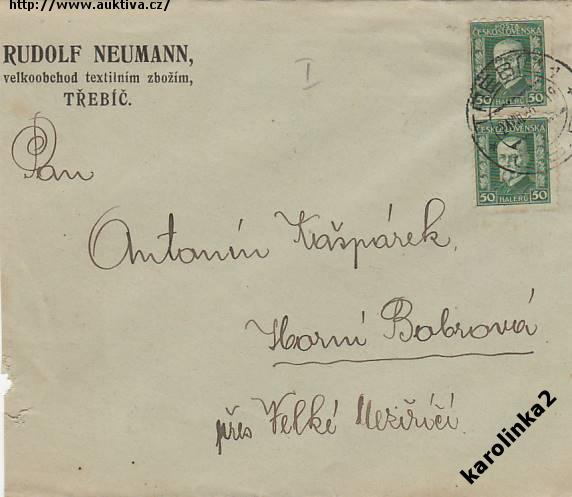 http://www.auktiva.cz/
RUDOLF NEUMANN,
velkoobchod textilním zbožím,
TŘEBÍČ.
I
POŠTA
ČESKOSLOVENSKÁ
50 HALÉŘŮ 50
POŠTA
ČESKOSLOVENSKÁ
50 HALÉŘŮ 50
Pan
Antonín Kašpárek,
Horní Bobrová
přes Velké Meziříčí.
karolinka2